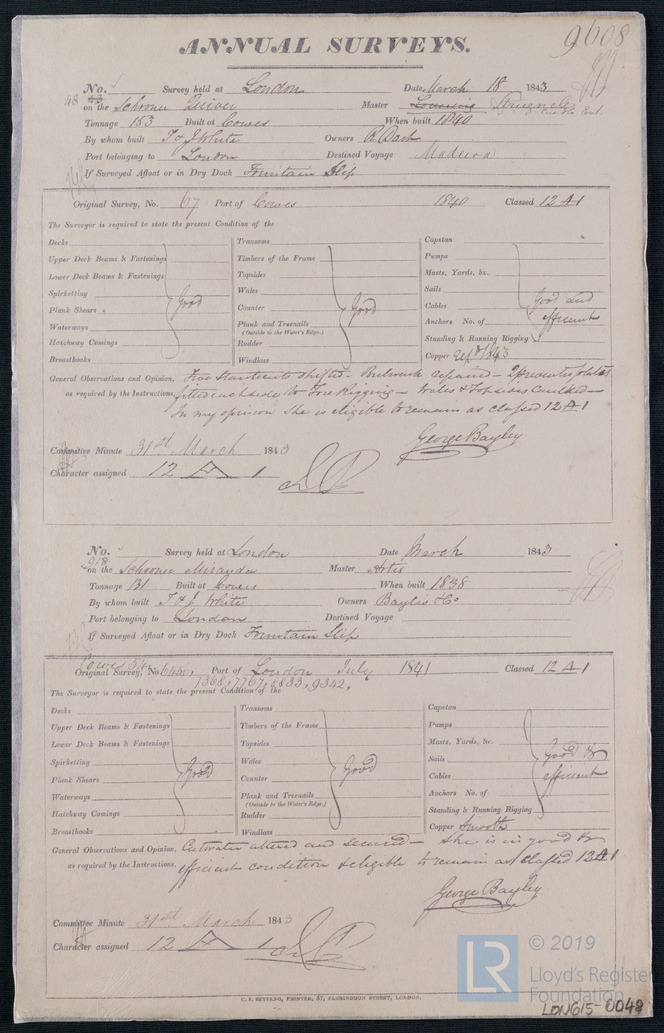 9608
ANNUAL SURVEYS.
No. 48 Survey held at London Date March 18 1843
on the Schooner Quiver Master
Tonnage 153 Built at Cowes When built 1840
By whom built T & J White Owners
Port belonging to London Destined Voyage Madeira
If Surveyed Afloat or in Dry Dock Fountain Slip
Original Survey, No. 67 Port of Cowes 1840 Classed 12 A 1
The Surveyor is required to state the present Condition of the
Decks Transoms Capstan
Upper Deck Beams & Fastenings Timbers of the Frame Pumps
Lower Deck Beams & Fastenings Topsides Masts, Yards, &c.
Spirketting Wales Sails
Plank Shears Good Counter Good Cables Good and
Waterways Plank and Treenails Anchors No. of efficient
(Outside to the Water's Edge.)
Hatchway Comings Rudder Standing & Running Rigging
Breasthooks Windlass Copper 1843
General Observations and Opinion, shifted - Bulwark repaired -
as required by the Instructions, fitted each side to Fore Rigging - Wales & Topsides Caulked -
In my opinion she is eligible to remain as classed 12 A 1
George Bayley
Committee Minute 31st March 1843
Character assigned 12 A 1
No. 918 Survey held at London Date March 1843
on the Schooner Miranda Master
Tonnage 131 Built at Cowes When built 1838
By whom built T & J White Owners
Port belonging to London Destined Voyage
If Surveyed Afloat or in Dry Dock Fountain Slip
Cowes 34
Original Survey, No. 6440, Port of London July 1841 Classed 12 A 1
7368, 7767, 8833, 9342,
The Surveyor is required to state the present Condition of the
Decks Transoms Capstan
Upper Deck Beams & Fastenings Timbers of the Frame Pumps
Lower Deck Beams & Fastenings Topsides Masts, Yards, &c.
Spirketting Wales Sails Good &
Plank Shears Good Counter Good Cables efficient
Waterways Plank and Treenails Anchors No. of
(Outside to the Water's Edge.)
Hatchway Comings Rudder Standing & Running Rigging
Breasthooks Windlass Copper Smooth
General Observations and Opinion, Cutwater altered and secured - She is in good &
as required by the Instructions, efficient condition & eligible to remain as classed 12 A 1
George Bayley
Committee Minute 31st March 1843
Character assigned 12 A 1
C. F. SEYFANG, PRINTER, 57, FARRINGDON STREET, LONDON.
LR © 2019
Lloyd's Register
Foundation
LON615-0048